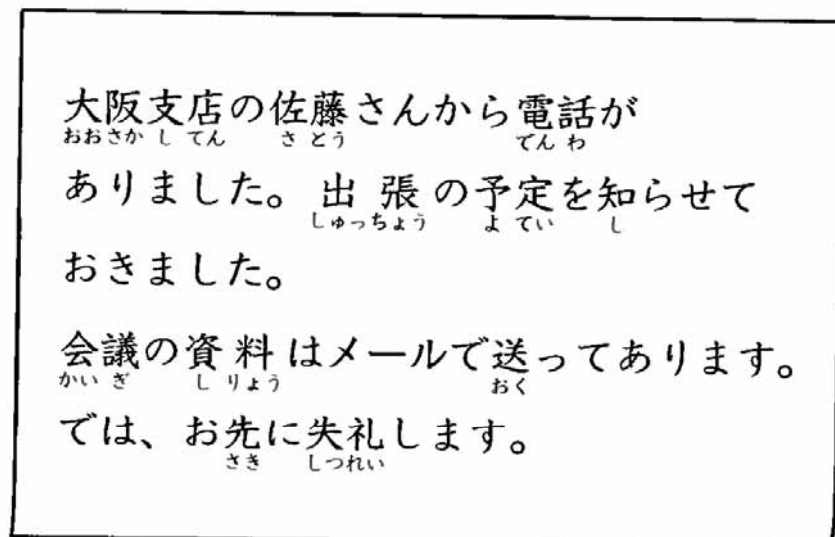 大阪支店の佐藤さんから電話が
おおさか し てん さ とう でん わ
ありました。出張の予定を知らせて
しゅっちょう よ てい し
おきました。
会議の資料はメールで送ってあります。
かい ぎ し りょう おく
では、お先に失礼します。
さき しつれい